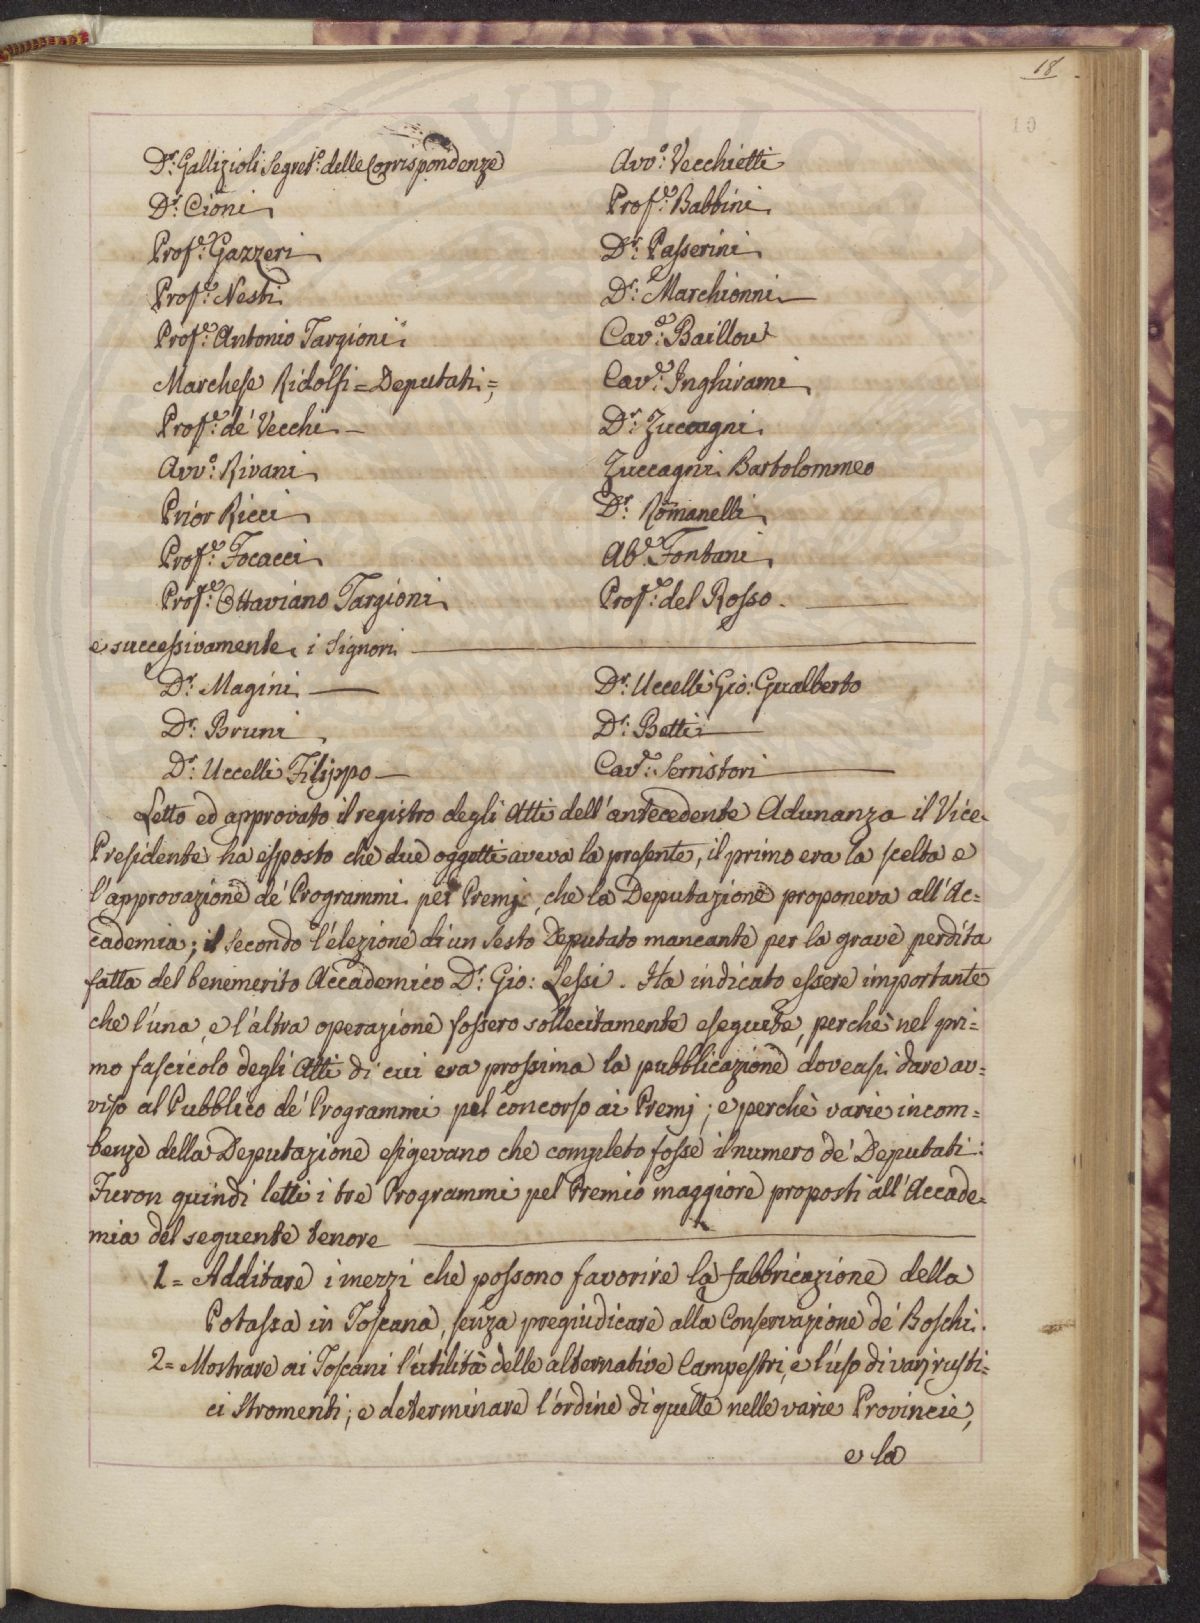 18
10
Dr. Gallizioli Segret.o delle Corrispondenze
Dr. Cioni
Prof.e Gazzeri
Prof.e Nesti
Prof.e Antonio Targioni
Marchese Ridolfi = Deputati =
Prof.e de' Vecchi
Avv.o Rivani
Prior Ricci
Prof.e Focacci
Prof.e Ottaviano Targioni
Avv.o Vecchietti
Prof.e Babbini
Dr. Passerini
Dr. Marchionni
Cav.e Baillou
Cav.e Inghirami
Dr. Zuccagni
Zuccagni Bartolommeo
Dr. Romanelli
Ab.e Fontani
Prof.e del Rosso
e successivamente i Signori
Dr. Magini
Dr. Bruni
Dr. Uccelli Filippo
Dr. Uccelli Gio: Gualberto
Dr. Betti
Cav.e Serristori
Letto ed approvato il registro degli Atti dell'antecedente Adunanza il Vice-
Presidente ha esposto che due oggetti aveva la presente, il primo era la scelta e
l'approvazione de' Programmi pei Premj, che la Deputazione proponeva all'Ac=
cademia; il secondo l'elezione di un sesto Deputato mancante per la grave perdita
fatta del benemerito Accademico Dr. Gio: Lessi. Ha indicato essere importante
che l'una, e l'altra operazione fossero sollecitamente eseguite, perchè nel pri=
mo fascicolo degli Atti di cui era prossima la pubblicazione doveasi dare av=
viso al Pubblico de' Programmi pel concorso ai Premj; e perchè varie incom=
benze della Deputazione esigevano che completo fosse il numero de' Deputati:
Furon quindi letti i tre Programmi pel Premio maggiore proposti all'Accade=
mia del seguente tenore
1= Additare i mezzi che possono favorire la fabbricazione della
Potassa in Toscana, senza pregiudicare alla Conservazione de' Boschi.
2= Mostrare ai Toscani l'utilità delle alternative Campestri, e l'uso di varj rusti=
ci stromenti; e determinare l'ordine di quelle nelle varie Provincie,
e la